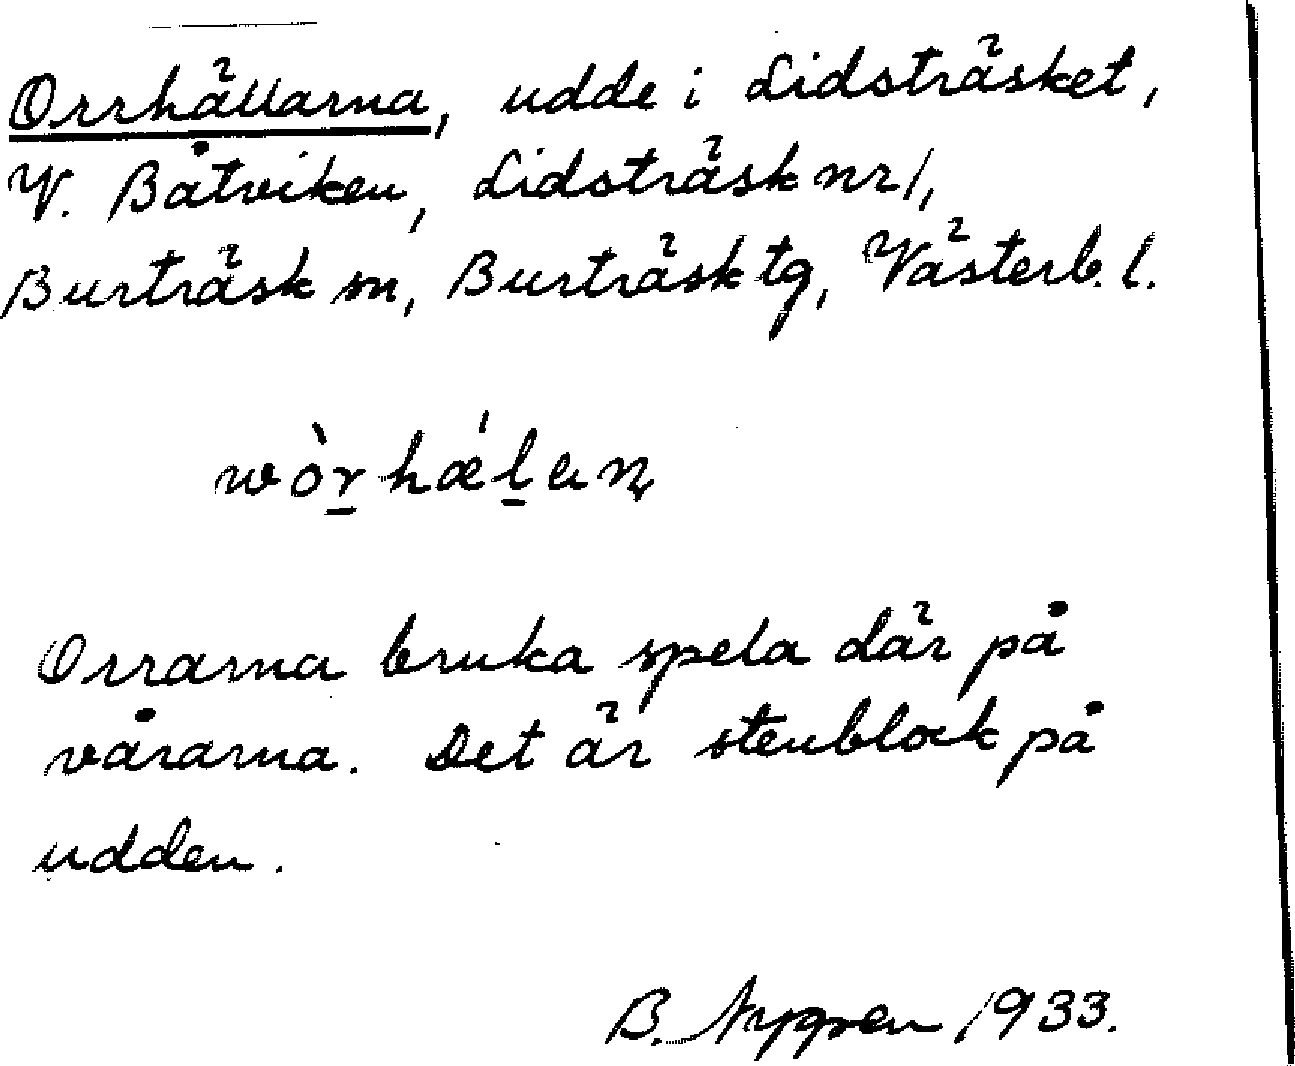 Orrhällarna, udde i Lidsträsket,
V. Båtviken, Lidsträsk nr 1,
Burträsk sn, Burträsk tg, Västerb. l.
Orrarna bruka spela där på
vårarna. Det är stenblock på
udden.
B. Nygren 1933.